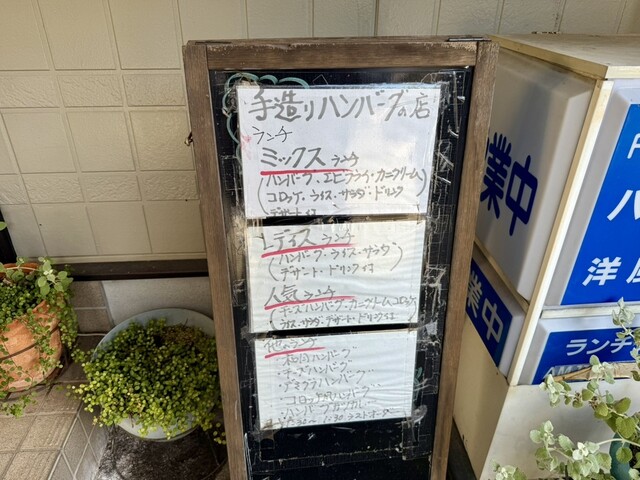 手造りハンバーグの店
ランチ
ミックスランチ
(ハンバーグ・エビフライ・カニクリーム
コロッケ・ライス・サラダ・ドリンク)
デザート付
レディスランチ
(ハンバーグ・ライス・サラダ
デザート・ドリンク付)
人気ランチ
(チーズハンバーグ・カニクリームコロッケ
ライス・サラダ・デザート・ドリンク付)
他のランチ
・和風ハンバーグ
・チーズハンバーグ
・デミグラハンバーグ
・コロッケ
・ハンバーグカツカレー
ラストオーダー
業中
業中
ハ
洋
ランチ